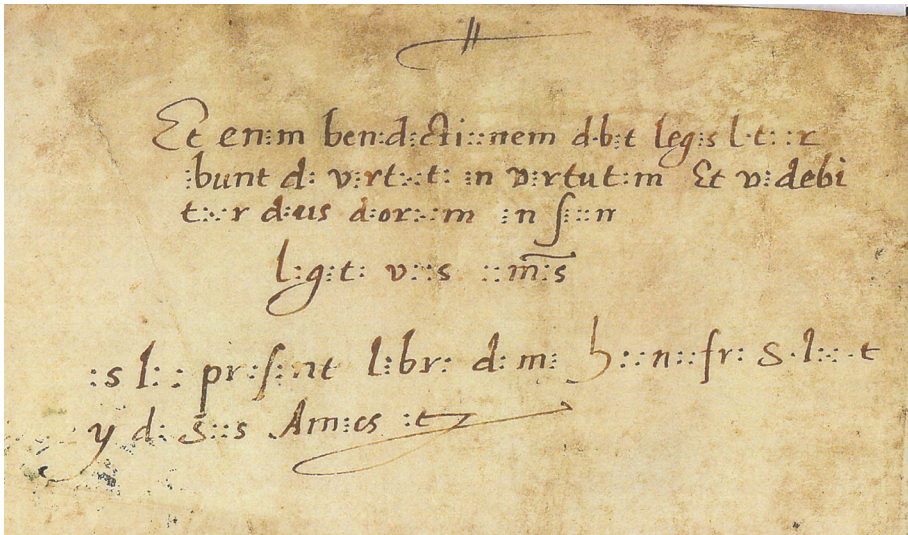 Et en∴m ben∴d∴cti∷nem d·b∴t leg∴s l·t∷r
∴bunt d: v∴rt∷t: ∴n v∴rtut:m Et v∴debi
t∷r d:us d:or∷m ∴n ſ∴∷n
l:g:t: v∷s ∷m̄:s
:s l∷ pr:ſ:nt l∴br: d: m: h∷n∷fr: S·l∷·t
y d: s̄∷s Am∴cs :t